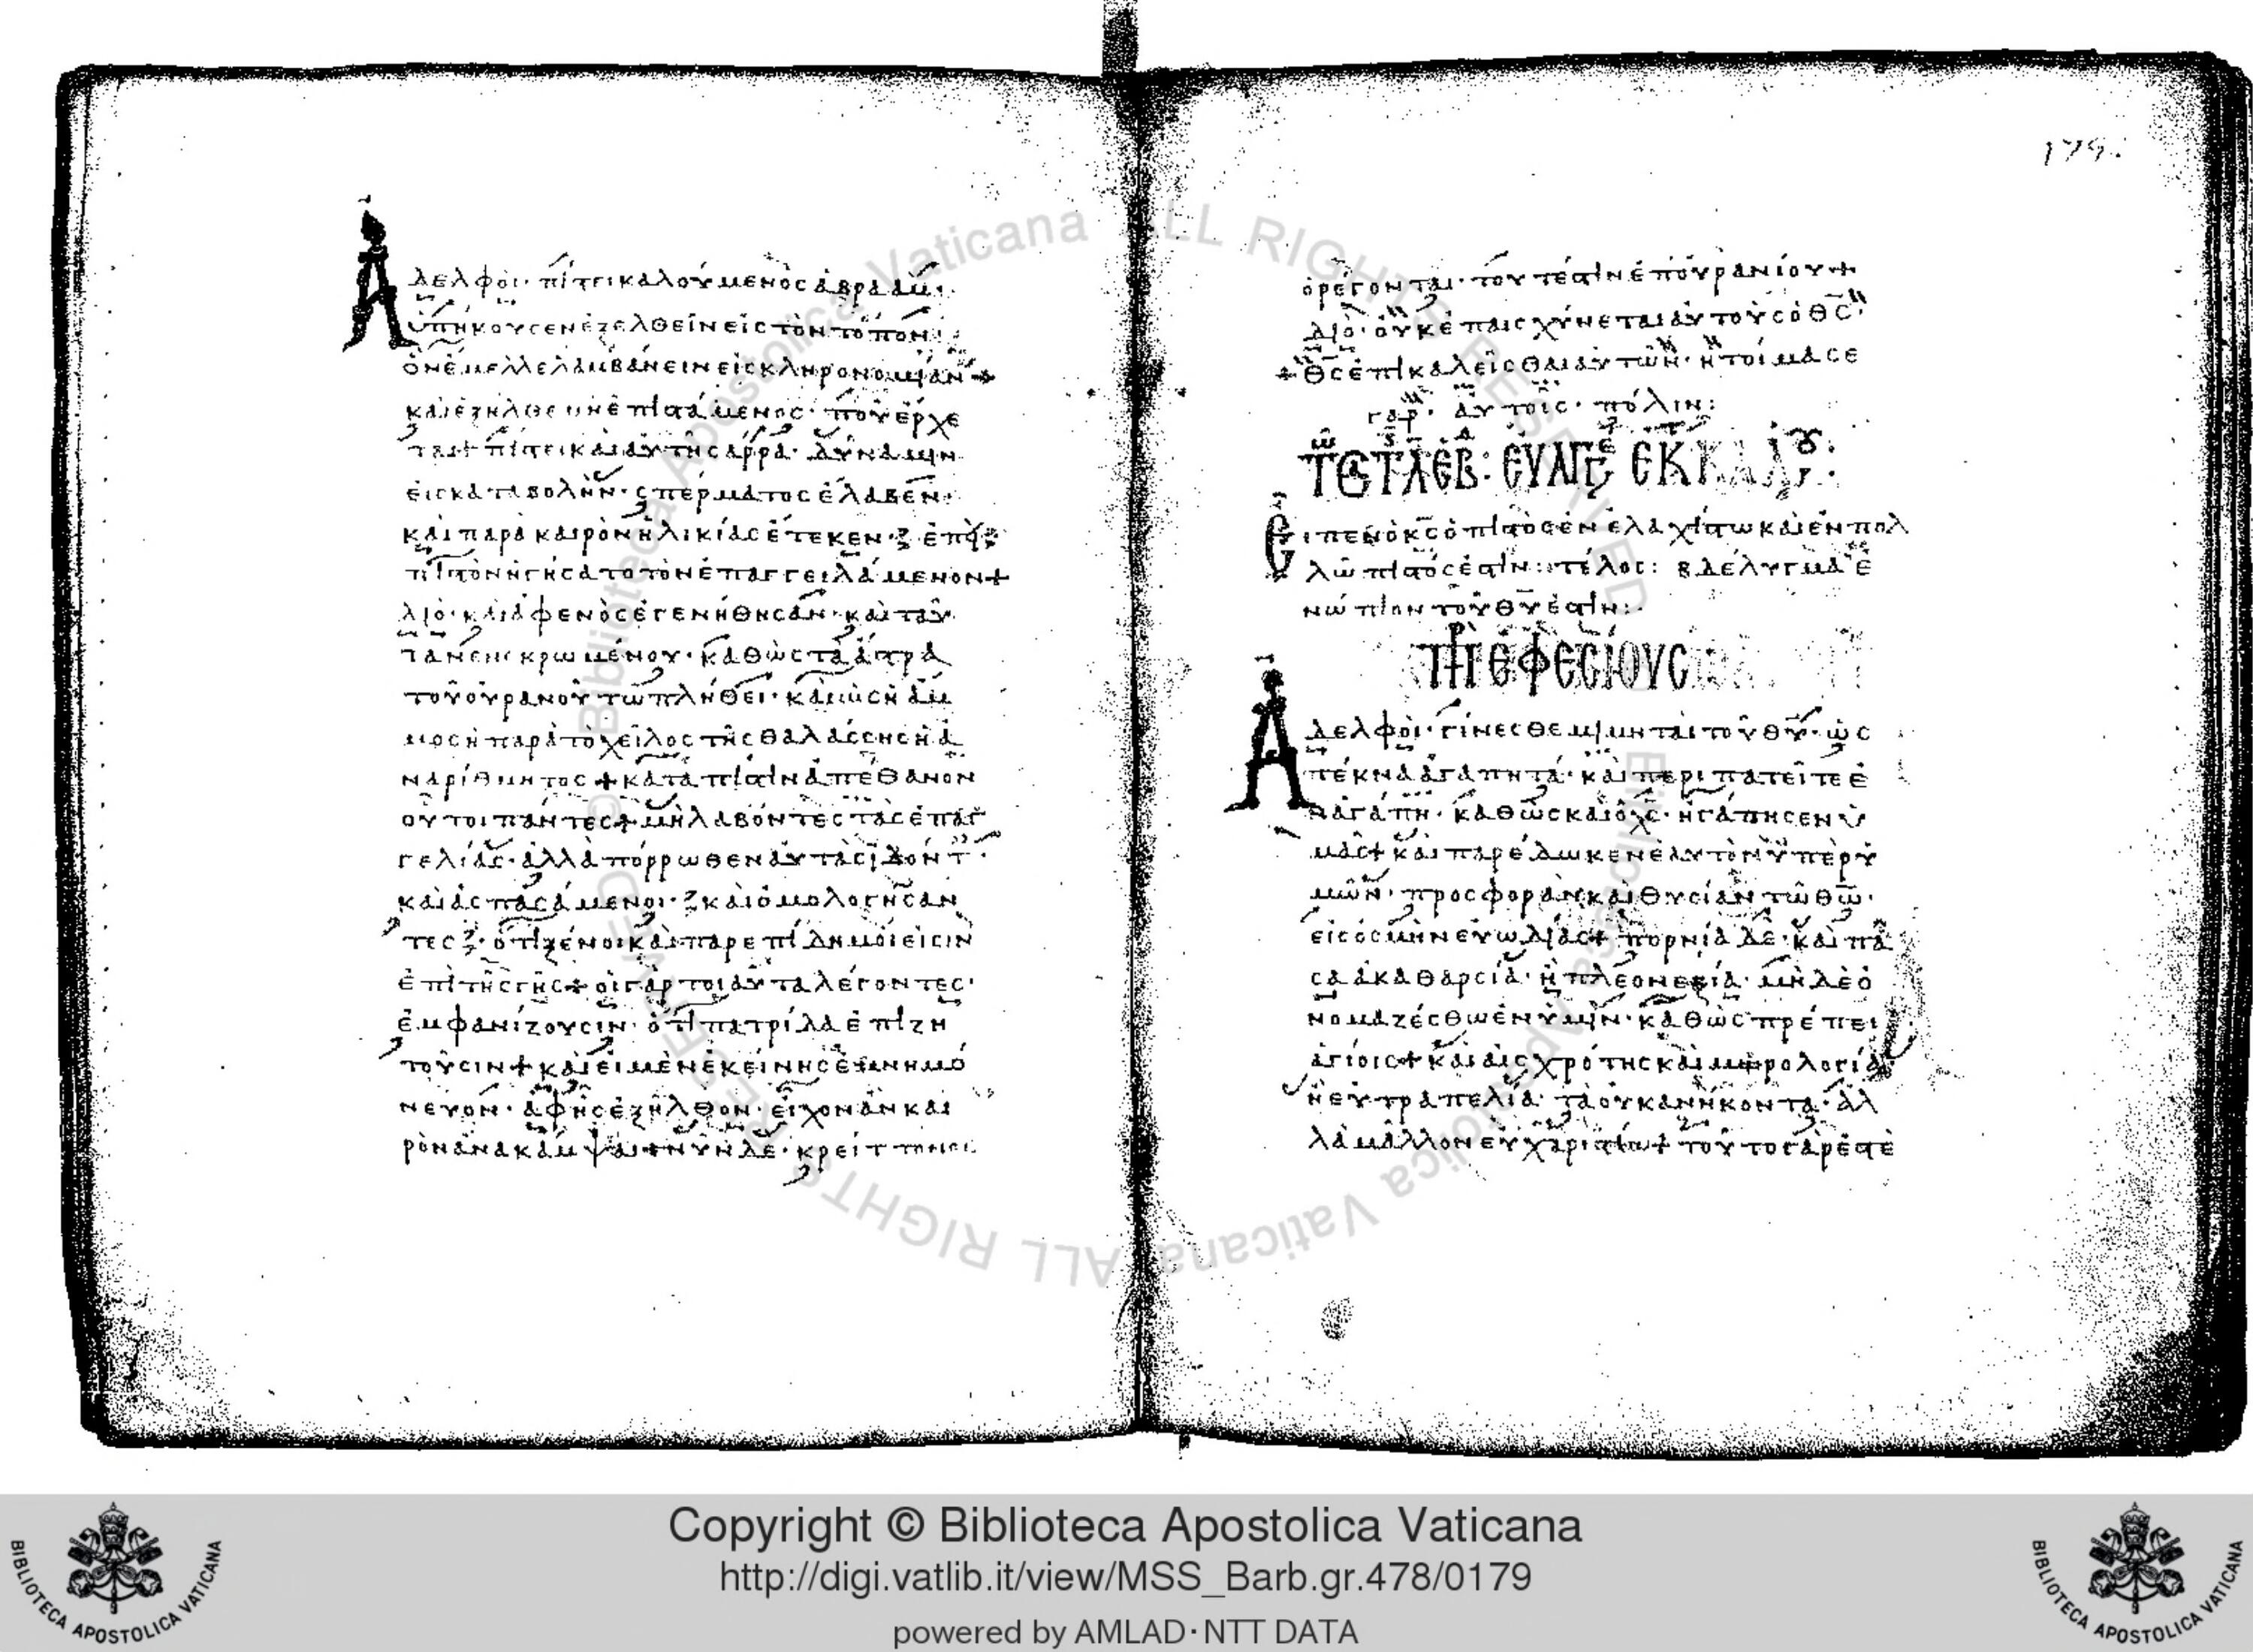 Ἀδελφοὶ· πίστει καλούμενος ἀβραὰμ·
ὑπήκουσεν ἐξελθεῖν εἰς τὸν τόπον
ὃν ἔμελλε λαμβάνειν εἰς κληρονομίαν +
καὶ ἐξῆλθε μὴ ἐπιστάμενος· ποῦ ἔρχε
ται + πίστει καὶ αὐτὴ σάρρα· δύναμιν
εἰς καταβολὴν· σπέρματος ἔλαβεν·
καὶ παρὰ καιρὸν ἡλικίας ἔτεκεν·
πιστὸν ἡγήσατο τὸν ἐπαγγειλάμενον +
διὸ· καὶ ἀφ ἑνὸς ἐγενήθησαν· καὶ ταῦ
τα νενεκρωμένου· καθὼς τὰ ἄστρα
τοῦ οὐρανοῦ τῶ πλήθει· καὶ ὡς ἡ ἄμ
μος ἡ παρὰ τὸ χεῖλος τῆς θαλάσσης ἡ ἀ
ναρίθμητος + κατὰ πίστιν ἀπέθανον
οὗτοι πάντες + μὴ λαβόντες τὰς ἐπαγ
γελίας· ἀλλὰ πόρρωθεν αὐτὰς ἰδόντ
καὶ ἀσπασάμενοι· ξ καὶ ὁμολογήσαν
τες ξ· ὅτι ξένοι καὶ παρεπίδημοί εἰσιν
ἐπὶ τῆς γῆς + οἱ γὰρ τοιαῦτα λέγοντες·
ἐμφανίζουσιν· ὅτι πατρίδα ἐπιζη
τοῦσιν + καὶ εἰ μὲν ἐκείνης ἐμνημό
νευον· ἀφ ἧς ἐξῆλθον· εἶχον ἂν και
ρὸν ἀνακάμψαι + νῦν δὲ· κρείττονος
ὀρέγονται· τουτέστιν ἐπουρανίου +
διὸ· οὐκ ἐπαισχύνεται αὐτοὺς ὁ θς·
+ θς ἐπικαλεῖσθαι αὐτῶν· ἡτοίμασε
γὰρ· αὐτοῖς· πόλιν:
Εἶπεν ὁ κς ὁ πιστὸς ἐν ἐλαχίστω καὶ ἐν πολ
λῶ πιστός ἐστιν: τέλος: βδέλυγμα ἐ
νώπιον τοῦ θυ ἐστιν:
ἐφεσίους
Ἀδελφοὶ· γίνεσθε μιμηταὶ τοῦ θυ· ὡς
τέκνα ἀγαπητά· καὶ περιπατεῖτε ἐ
ν ἀγάπη· καθὼς καὶ ὁ χς· ἠγάπησεν ὑ
μᾶς + καὶ παρέδωκεν ἑαυτὸν ὑπὲρ ὑ
μῶν· προσφορὰν καὶ θυσίαν τῶ θω·
εἰς ὀσμὴν εὐωδίας + πορνία δὲ· καὶ πᾶ
σα ἀκαθαρσία· ἢ πλεονεξία· μὴ δὲ ὀ
νομαζέσθω ἐν ὑμῖν· καθὼς πρέπει
ἁγίοις + καὶ αἰσχρότης καὶ μωρολογία
ἢ εὐτραπελία· τὰ οὐκ ἀνήκοντα· ἀλ
λὰ μᾶλλον εὐχαριστία + τοῦτο γὰρ ἔστὲ
Copyright © Biblioteca Apostolica Vaticana
http://digi.vatlib.it/view/MSS_Barb.gr.478/0179
powered by AMLAD·NTT DATA
BIBLIOTECA APOSTOLICA VATICANA
BIBLIOTECA APOSTOLICA VATICANA